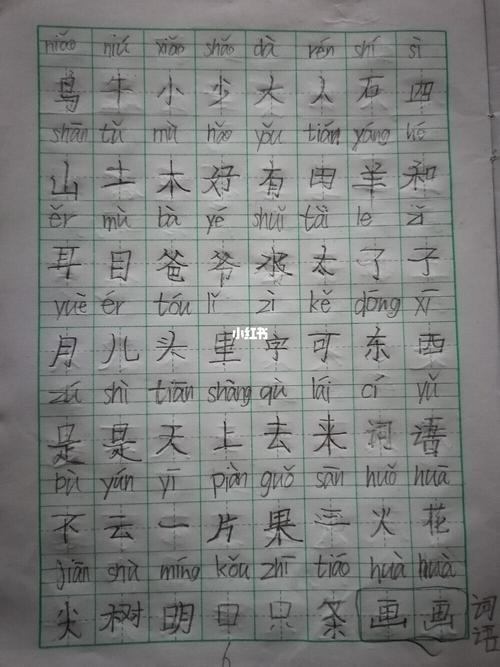 niǎo niú xiǎo shǎo dà rén shí sì
鸟 牛 小 少 大 人 石 四
shān tǔ mù hǎo yǒu tián yáng hé
山 土 木 好 有 田 羊 和
ěr mù bà yé shuǐ tài le zǐ
耳 目 爸 爷 水 太 了 子
yuè ér tóu lǐ zì kě dōng xī
月 儿 头 里 字 可 东 西
小红书
zú shì tiān shàng qù lái cí yǔ
足 是 天 上 去 来 词 语
bù yún yī piàn guǒ sān huǒ huā
不 云 一 片 果 三 火 花
jiān shù míng kǒu zhī tiáo huà huà
尖 树 明 口 只 条 画 画
词语